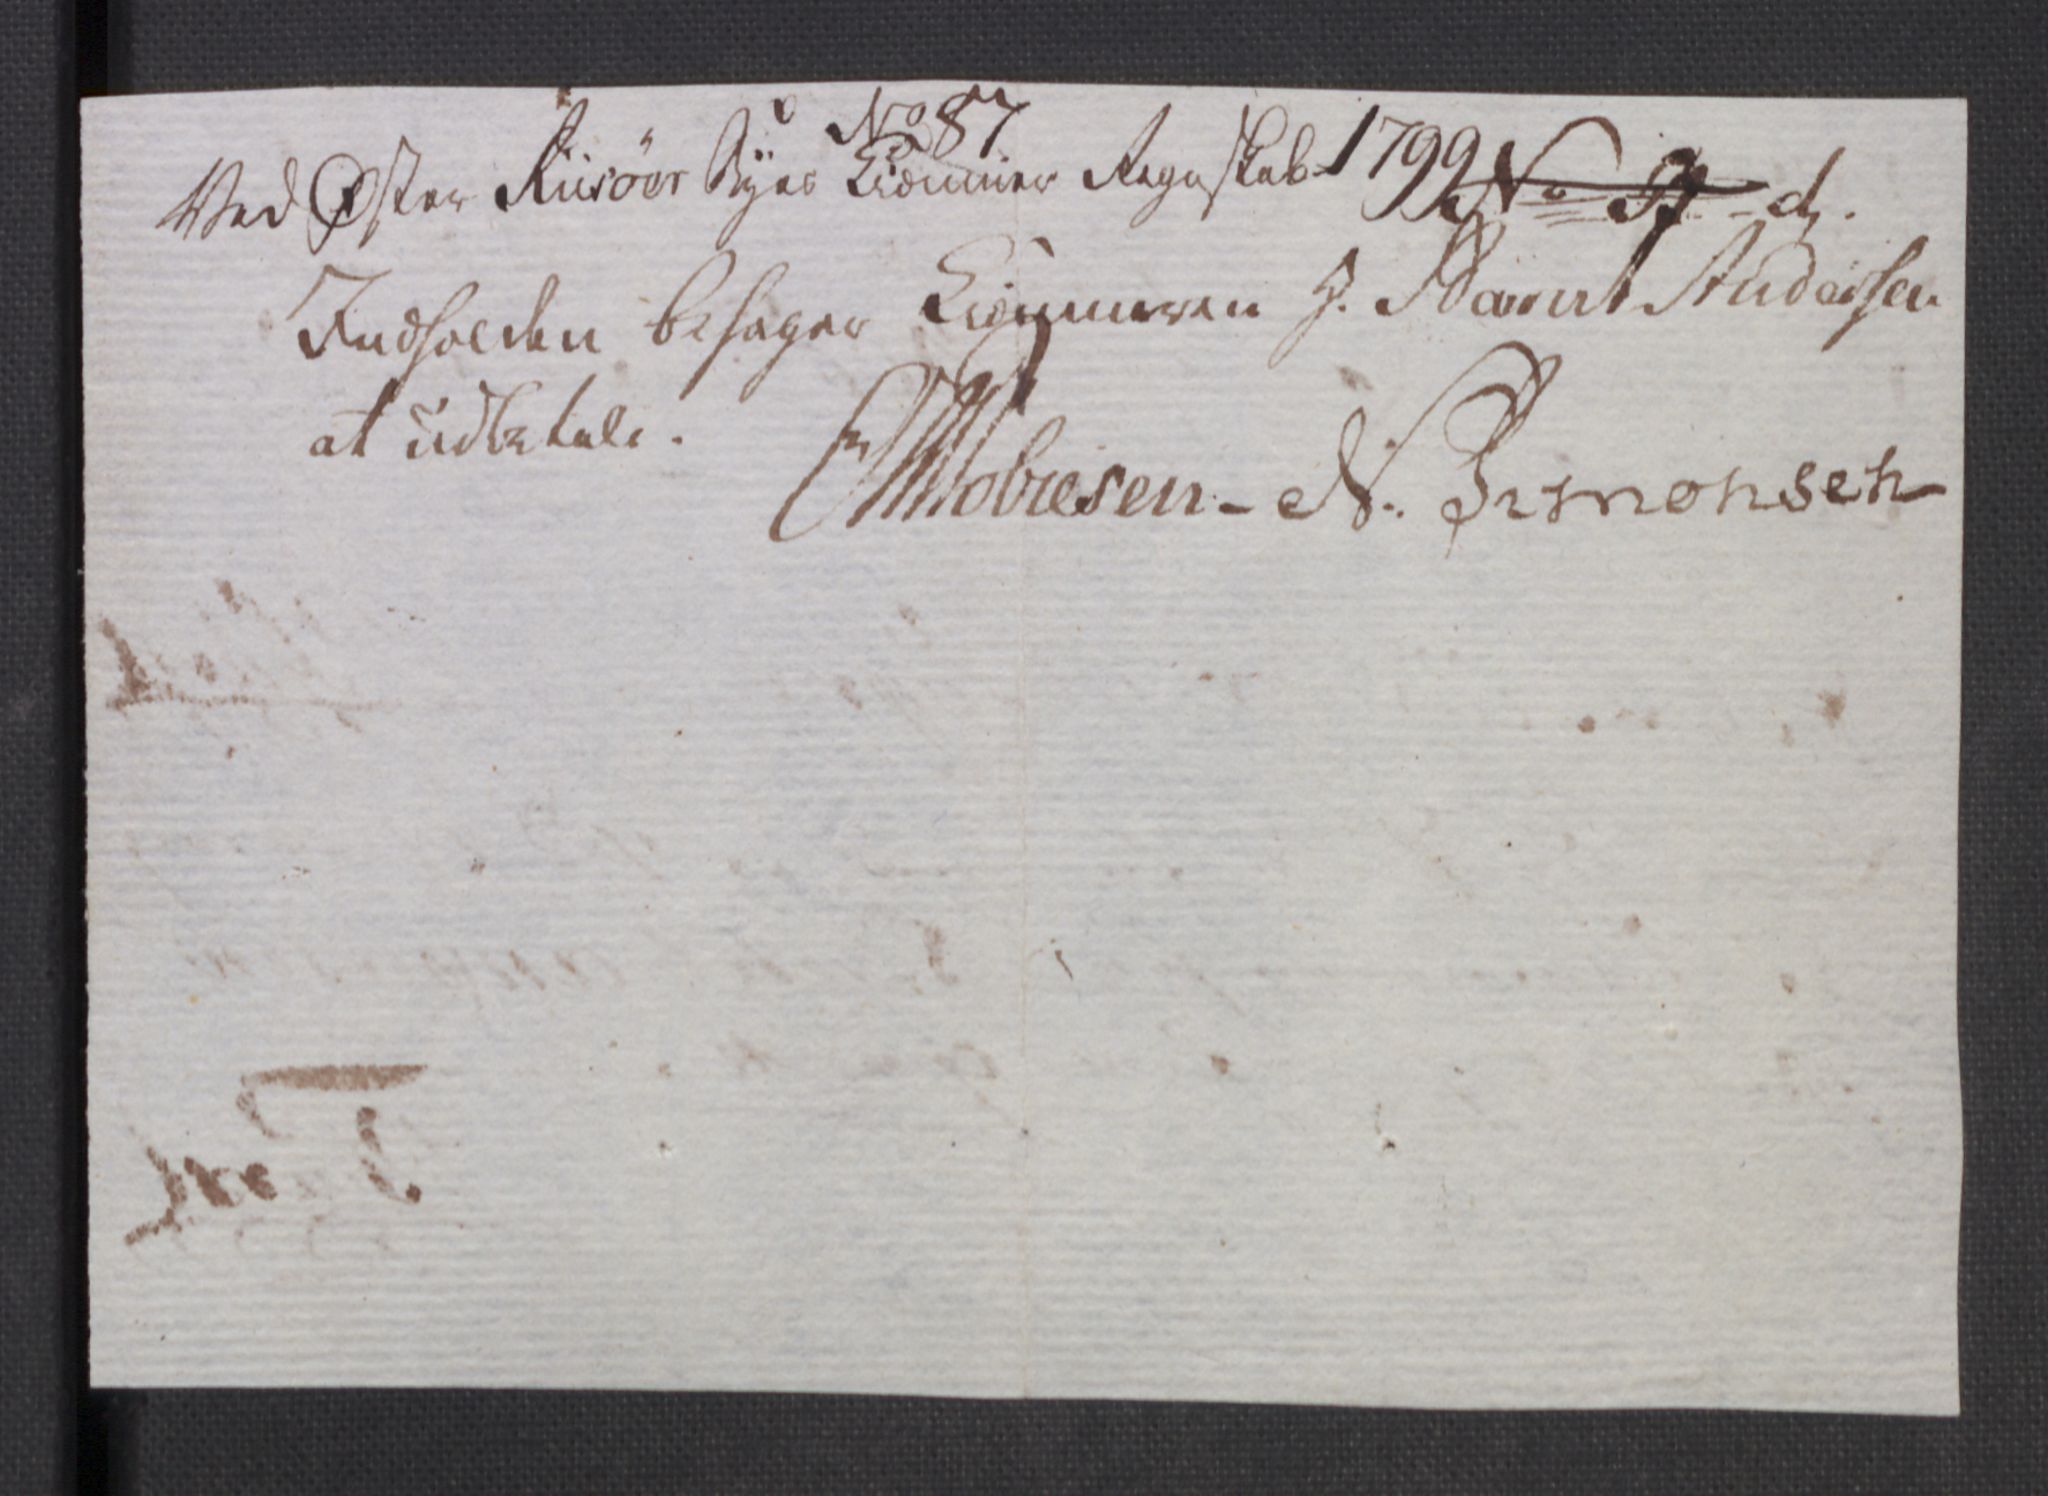 No 87
Ved Øster Riisöer Byes Kiemner Regnskab 1799 No
Indholden besager Kiemneren J. Bernt Andersen
at üdbetale.
Mobiesen - N. Simonsen